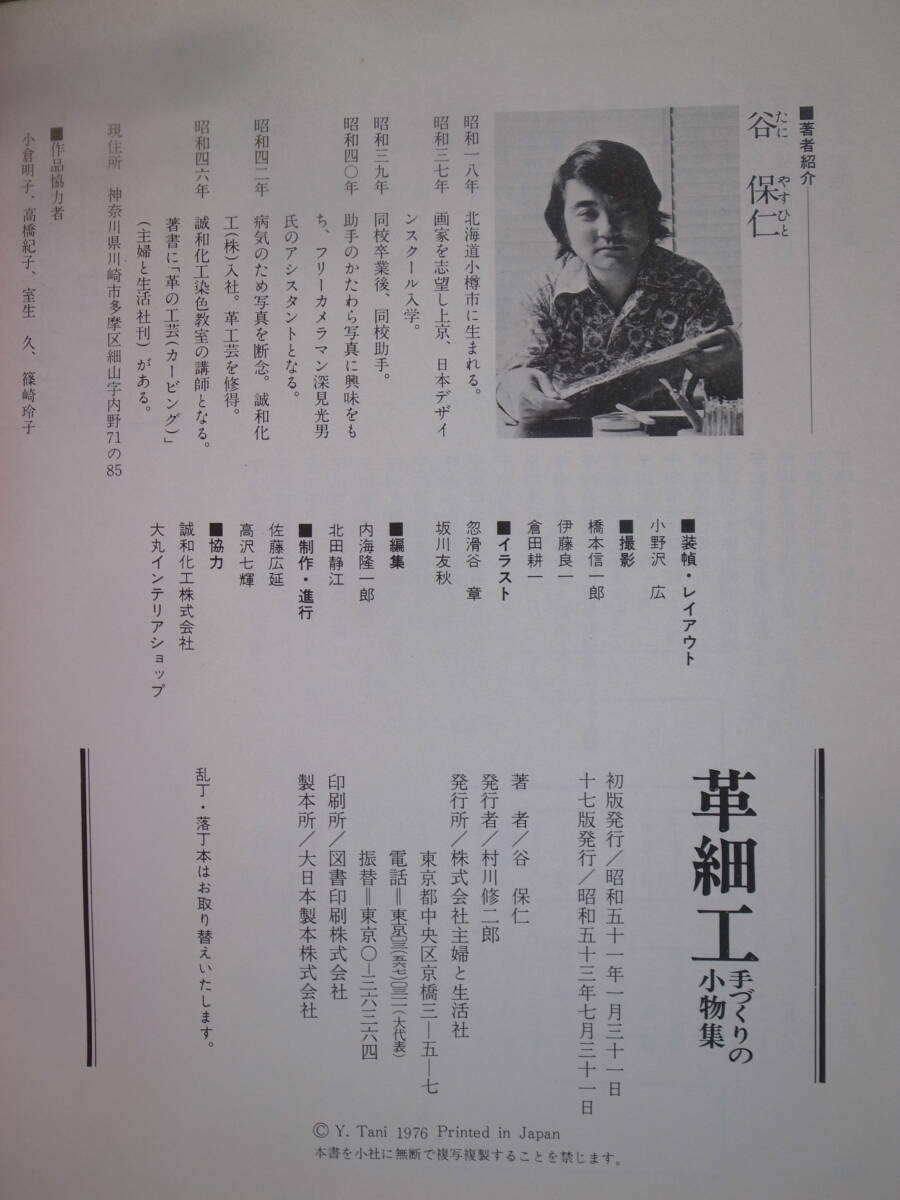 ■著者紹介
谷 保仁
たに やすひと
昭和一八年 北海道小樽市に生まれる。
昭和三七年 画家を志望し上京、日本デザイ
ンスクール入学。
昭和三九年 同校卒業後、同校助手。
昭和四〇年 助手のかたわら写真に興味をも
ち、フリーカメラマン深見光男
氏のアシスタントとなる。
昭和四二年 病気のため写真を断念。誠和化
工(株)入社。革工芸を修得。
昭和四六年 誠和化工染色教室の講師となる。
著書に「革の工芸(カービング)」
(主婦と生活社刊)がある。
現住所 神奈川県川崎市多摩区細山字内野71の85
■作品協力者
小倉明子、高橋紀子、室生 久、篠崎玲子
■装幀・レイアウト
小野沢 広
■撮影
橋本信一郎
伊藤良一
倉田耕一
■イラスト
忽滑谷 章
坂川友秋
■編集
内海隆一郎
北田静江
■制作・進行
佐藤広延
高沢七輝
■協力
誠和化工株式会社
大丸インテリアショップ
革細工
手づくりの
小物集
初版発行/昭和五十一年一月三十一日
十七版発行/昭和五十三年七月三十一日
著 者/谷 保仁
発行者/村川修二郎
発行所/株式会社主婦と生活社
東京都中央区京橋三―五―七
電話=東京〇三(五六七)〇三一一(大代表)
振替=東京〇―三六三六四
印刷所/図書印刷株式会社
製本所/大日本製本株式会社
乱丁・落丁本はお取り替えいたします。
© Y. Tani 1976 Printed in Japan
本書を小社に無断で複写複製することを禁じます。